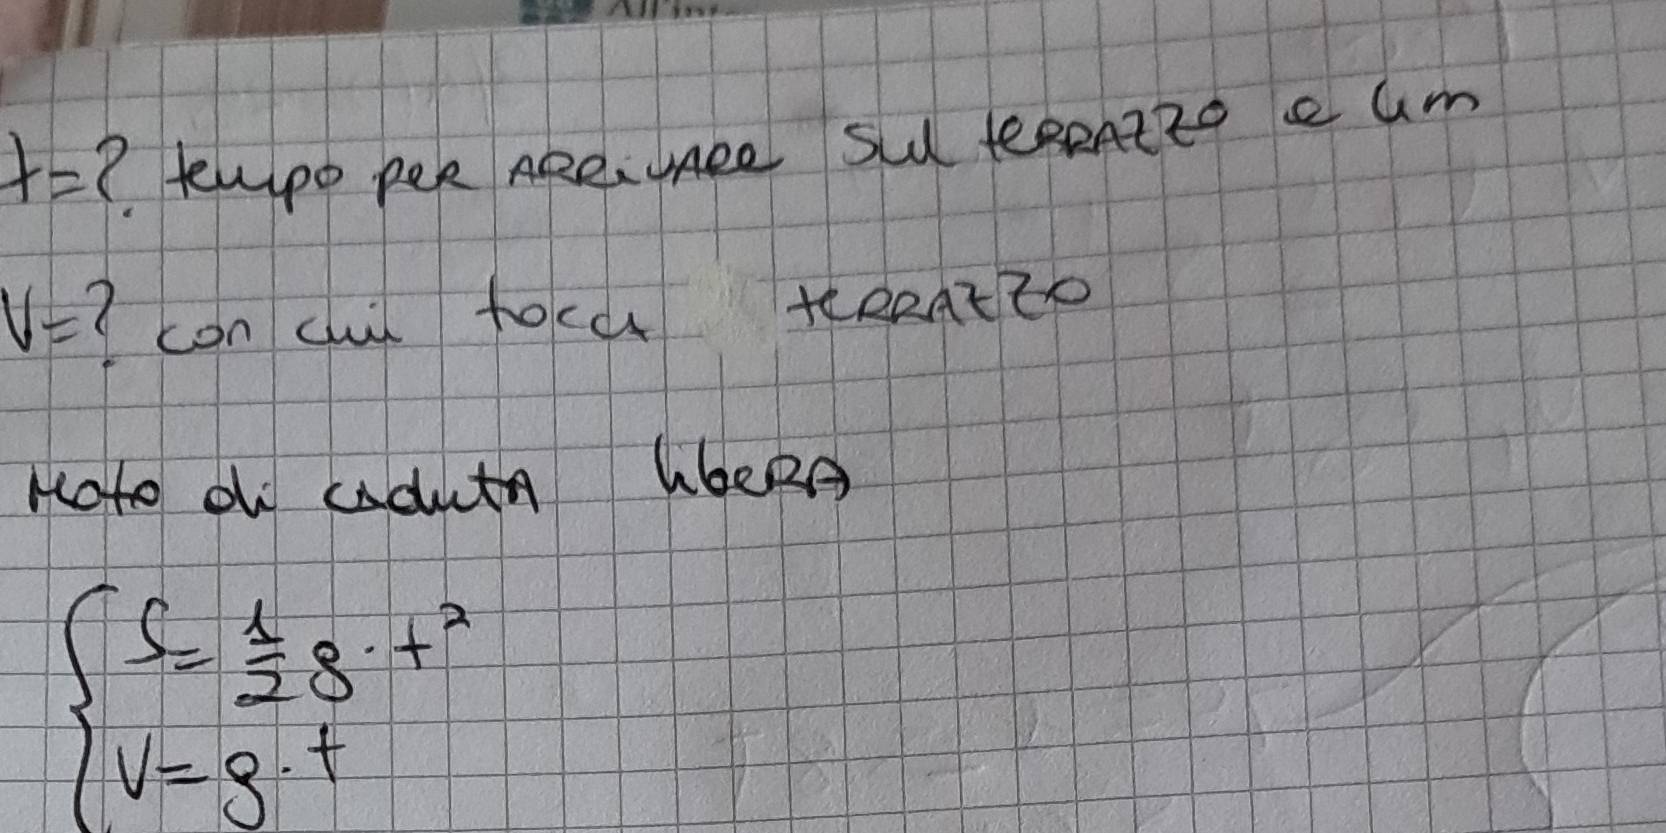 t=? tempo per ARRIVARE sul teRRAZZO a 4m
V=? con cui tocca teRRAZZO
Moto di cadutA libeRA
S= 1/2 g · t²
V= g · t